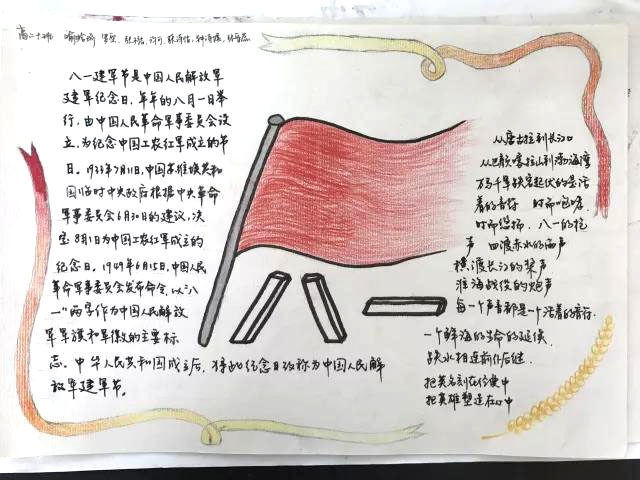 高二十班
八一建军节是中国人民解放军
建军纪念日,每年的八月一日举
行,由中国人民革命军事委员会设
立,为纪念中国工农红军成立的节
日。1933年7月11日,中国苏维埃共和
国临时中央政府根据中央革命
军事委员会6月30日的建议,决
定8月1日为中国工农红军成立的
纪念日。1949年6月15日,中国人民
革命军事委员会发布命令,以"八
一"两字作为中国人民解放
军军旗和军徽的主要标
志。中华人民共和国成立后,将此纪念日改称为中国人民解
放军建军节。
八一
从唐古拉到长江口
从巴颜喀拉山到渤海湾
万马千军跌宕起伏的是活
着的音符 时而咆哮
时而悠扬,八一的枪
声 四渡赤水的雨声
横渡长江的桨声
淮海战役的炮声
每一个声音都是一个活着的音符
一个鲜活的生命的延续
血水相连前仆后继
把英名刻在传奇中
把英雄塑造在心中